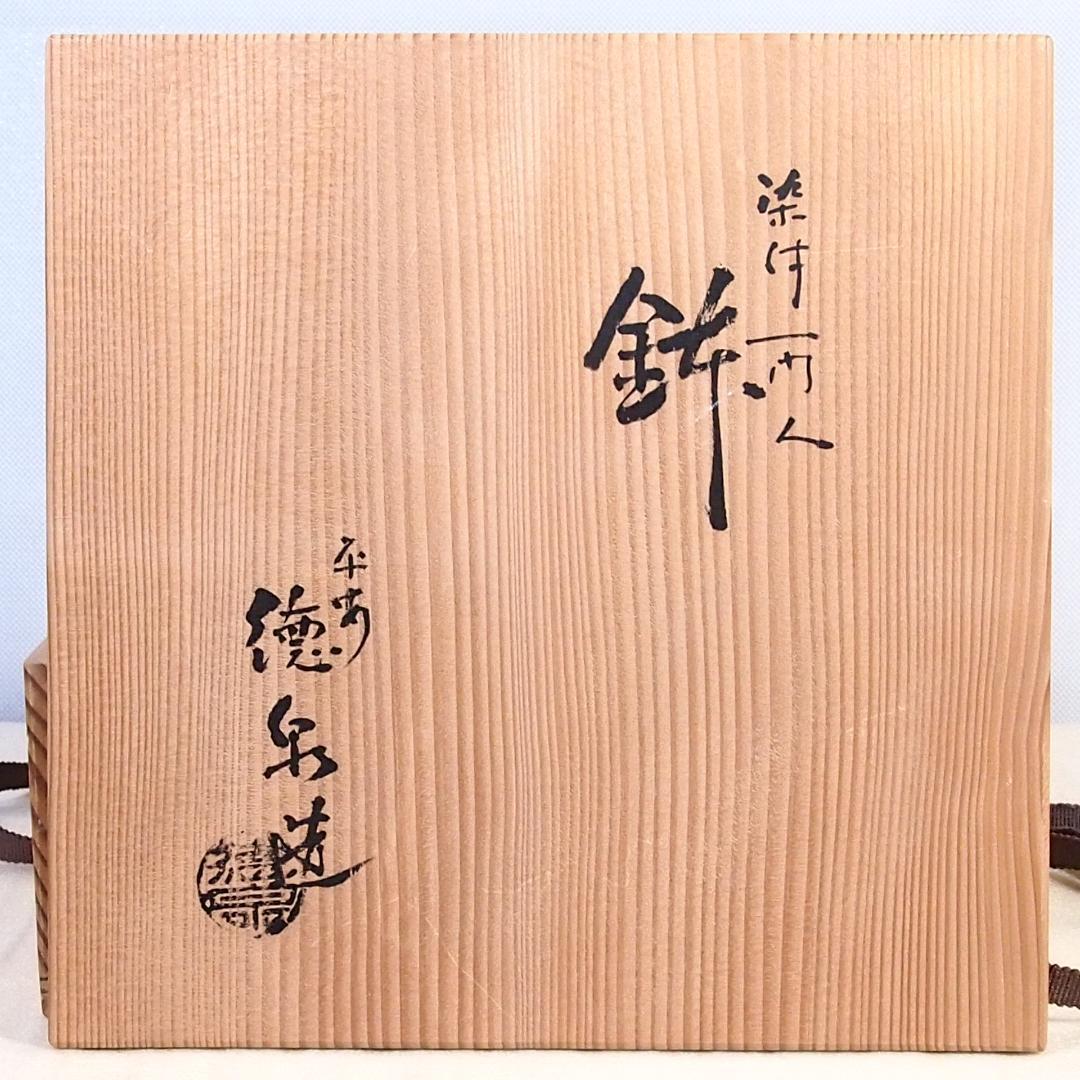 染付一閑人
鉢
平安
徳泉造